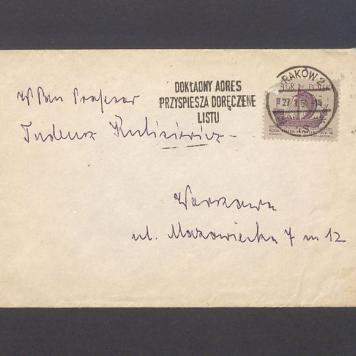 DOKŁADNY ADRES
PRZYSPIESZA DORĘCZENIE
LISTU
KRAKÓW 2
W Pan Profesor
Tadeusz Kulisiewicz
Warszawa
ul. Mazowiecka 7 m 12